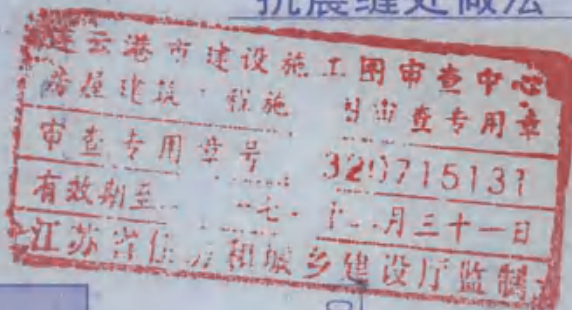 抗震缝处做法
连云港市建设施工图审查中心
房屋建筑工程施 图审查专用章
审查专用章号 320715131
有效期至 七 十 月三十一日
江苏省住房和城乡建设厅监制